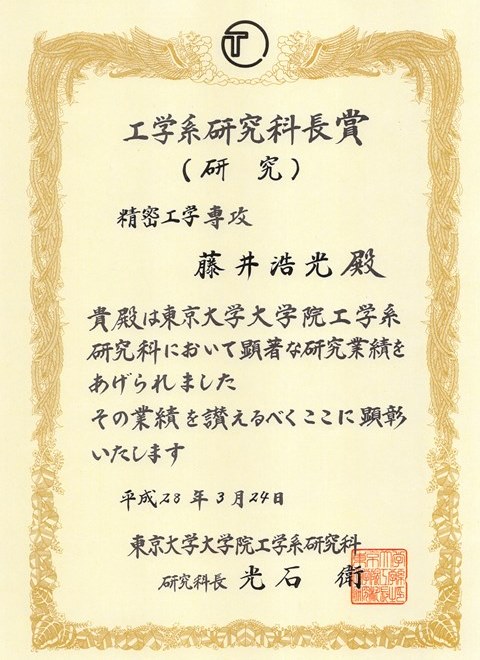 工学系研究科長賞
(研究)
精密工学専攻
藤井浩光殿
貴殿は東京大学大学院工学系
研究科において顕著な研究業績を
あげられました
その業績を讃えるべくここに顕彰
いたします
平成28年3月24日
東京大学大学院工学系研究科
研究科長 光石 衛